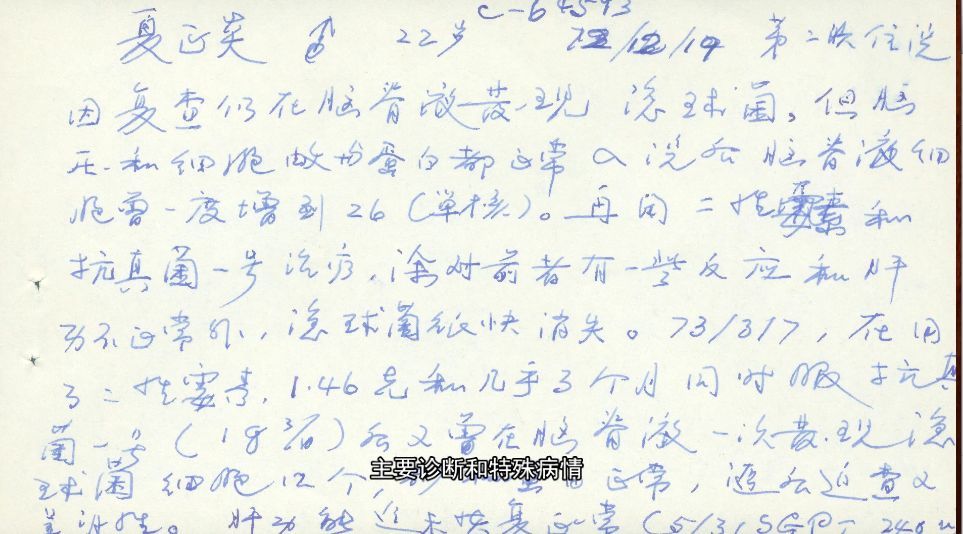 C-64593
夏正炎 ♂ 22岁 72/12/19 第二次住院
因复查仍在脑脊液发现隐球菌。但脑
压和细胞数均蛋白都正常 入院后脑脊液细
胞曾一度增到26（单核）。再用二性霉素和
抗真菌一号治疗，除对前者有一些反应和肝
功不正常外，隐球菌很快消失。73/3/7，在用
了二性霉素1.46克和几乎3个月同时服抗真
菌一号（1g 3/日）后又曾在脑脊液一次发现隐
球菌 细胞12个，正常，随后近查又
是阴性。肝功能近未恢复正常（5/3 SGPT 240u
主要诊断和特殊病情